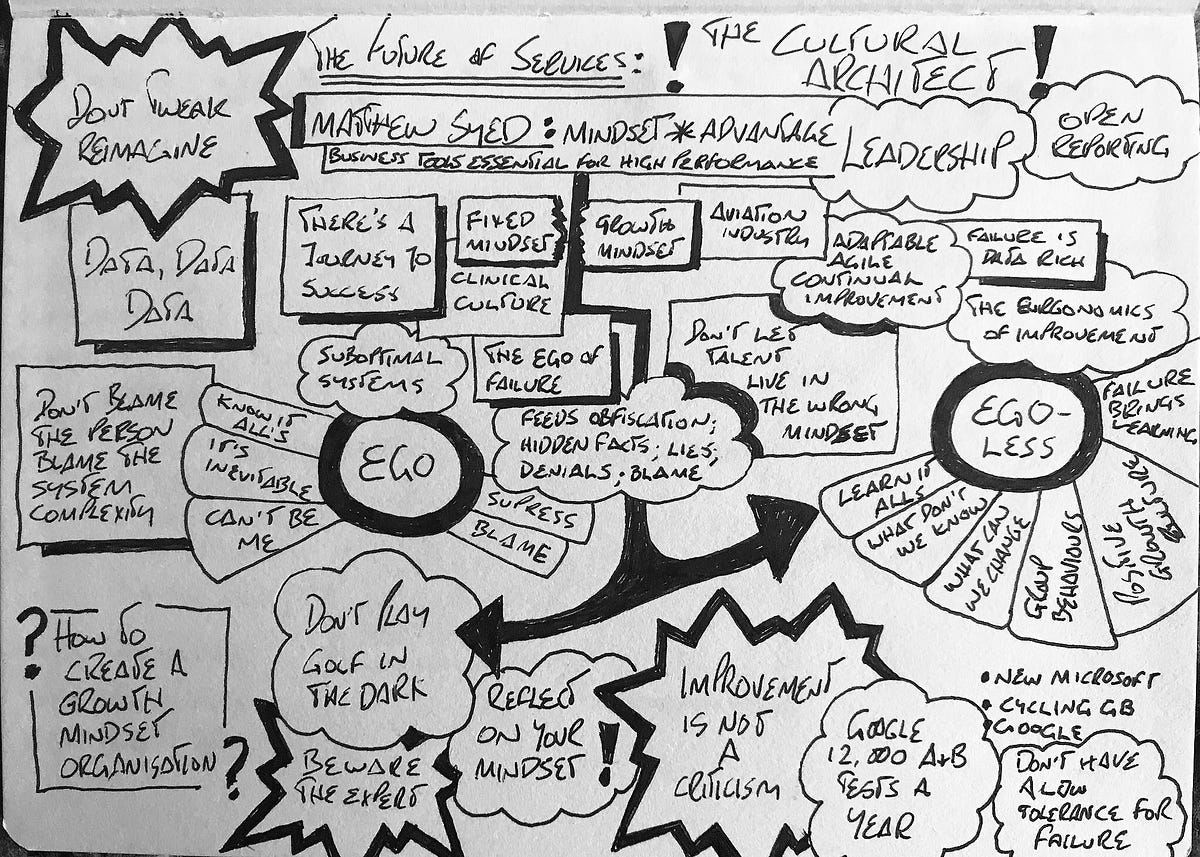 THE FUTURE OF SERVICES:
! THE CULTURAL
ARCHITECT !
DONT TWEAK
REIMAGINE
MATTHEW SYED: MINDSET * ADVANTAGE
BUSINESS TOOLS ESSENTIAL FOR HIGH PERFORMANCE
LEADERSHIP
OPEN
REPORTING
DATA, DATA
DATA
THERE'S A
JOURNEY TO
SUCCESS
FIXED
MINDSET
CLINICAL
CULTURE
GROWTH
MINDSET
AVIATION
INDUSTRY
ADAPTABLE
AGILE
CONTINUAL
IMPROVEMENT
FAILURE IS
DATA RICH
THE EURGONOMICS
OF IMPROVEMENT
SUBOPTIMAL
SYSTEMS
THE EGO OF
FAILURE
DON'T LET
TALENT
LIVE IN
THE WRONG
MINDSET
DON'T BLAME
THE PERSON
BLAME THE
SYSTEM
COMPLEXITY
KNOW IT
ALL'S
IT'S
INEVITABLE
CAN'T BE
ME
EGO
FEEDS OBFISCATION;
HIDDEN FACTS; LIES;
DENIALS; BLAME
SUPRESS
BLAME
EGO-
LESS
FAILURE
BRINGS
LEARNING
LEARN IT
ALLS
WHAT DON'T
WE KNOW
WHAT CAN
WE CHANGE
GROUP
BEHAVIOURS
POSITIVE
GROWTH
? HOW TO
CREATE A
GROWTH
MINDSET
ORGANISATION ?
DON'T PLAY
GOLF IN
THE DARK
BEWARE
THE EXPERT
REFLECT
ON YOUR
MINDSET !
IMPROVEMENT
IS NOT
A
CRITICISM
GOOGLE
12,000 A+B
TESTS A
YEAR
• NEW MICROSOFT
• CYCLING GB
• GOOGLE
DON'T HAVE
A LOW
TOLERANCE FOR
FAILURE